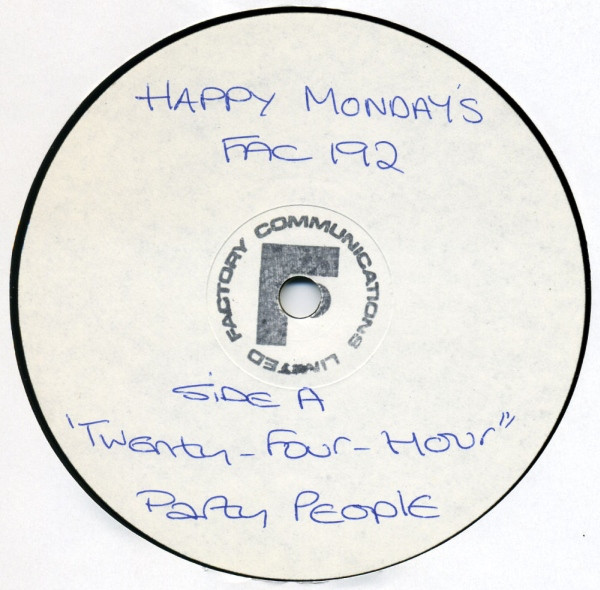 HAPPY MONDAY'S
FAC 192
FACTORY COMMUNICATIONS LIMITED
F
SiDE A
'Twenty-Four-Hour"
Party PEOPlE